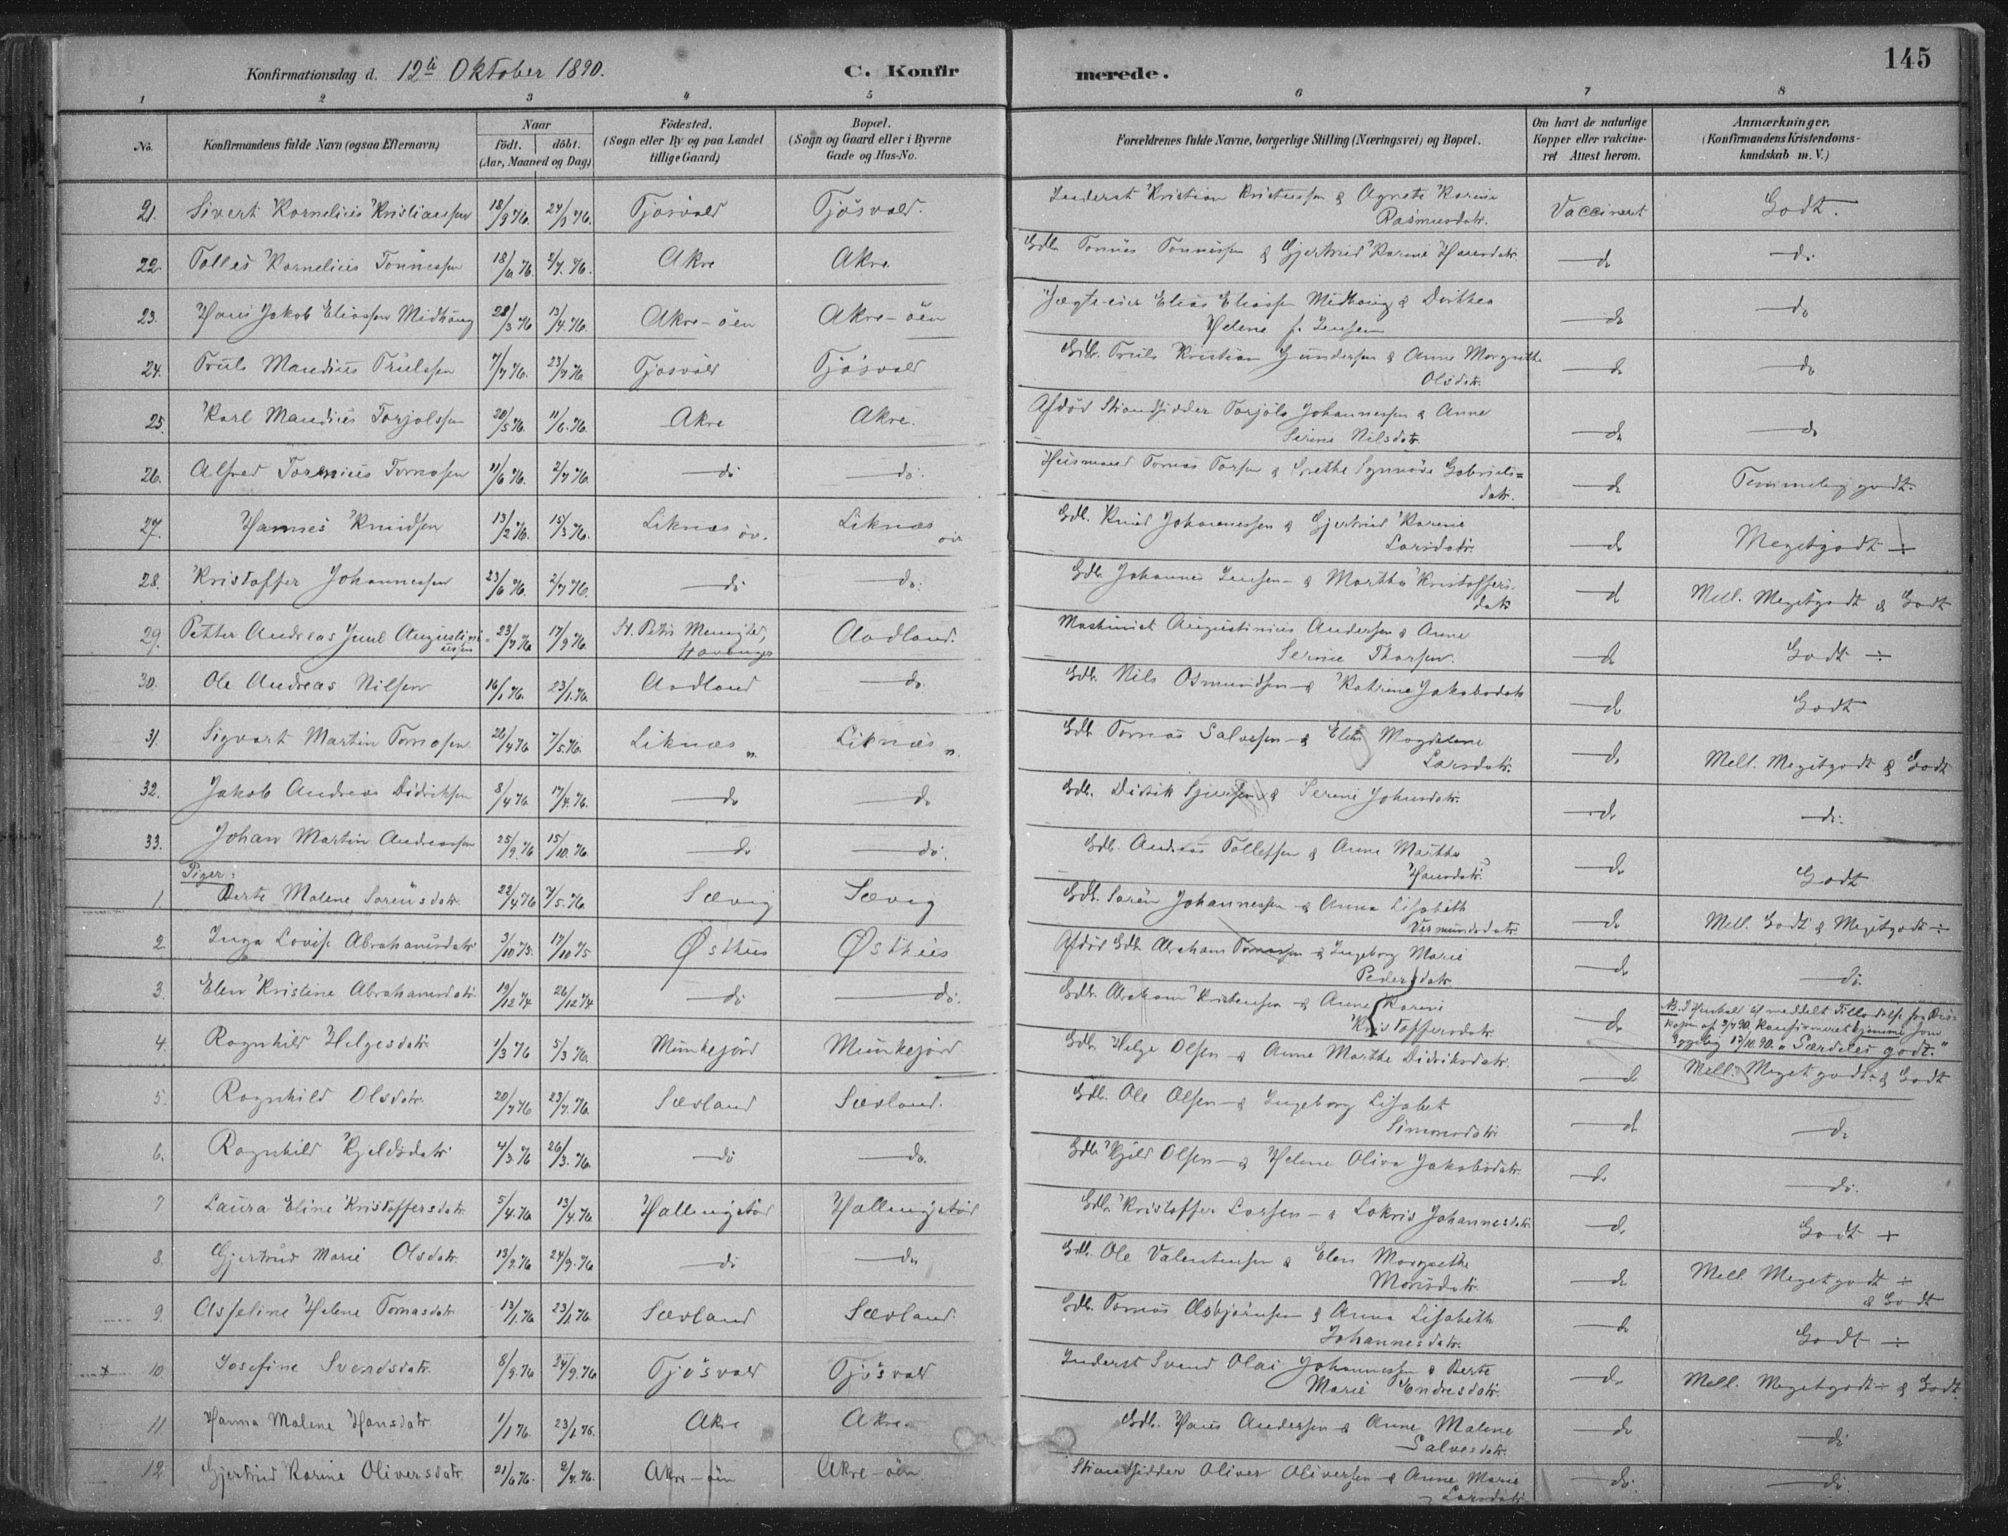 Konfirmationsdag d. 12te Oktober 1890. C. Konfirmerede. 145
1 2 3 4 5 6 7 8
No. Konfirmandens fulde Navn (ogsaa Efternavn) Naar født. døbt. (Aar, Maaned og Dag) Fødested. (Sogn eller By og paa Landet tillige Gaard) Bopæl. (Sogn og Gaard eller i Byerne Gade og Hus-No. Forældrenes fulde Navne, borgerlige Stilling (Næringsvei) og Bopæl. Om havt de naturlige Kopper eller vakcineret Attest herom. Anmærkninger. (Konfirmandens Kristendomskundskab m. V.)
21. Sivert Kornelius Kristiansen 18/3 76 24/9 76. Tjøsvold Tjøsvold. Inderst Kristian Kristensen & Agnete Karine Rasmusdatr. Vaccineret Godt.
22. Tolles Kornelius Tønnessen 18/6 76. 2/7. 76. Akre Akre. Gdb. Tønnes Tønnessen & Gjertrud Karine Hansdatr. do do
23. Hans Jakob Eliassen Midhaug 28/3 76 13/4 76. Akre-øen Akre-øen Jægteeier Elias Eliassen Midhaug & Dorthea Helene f. Jensen do do
24. Truls Mandius Trulssen 7/7 76. 23/7 76 Tjøsvold Tjøsvold Gdb. Truls Kristian Gundersen & Anne Margrethe Olsdatr. do do
25. Karl Mandius Torjolssen 20/5 76. 11/6. 76. Akre Akre. Afdød Strandsidder Torjols Johannessen & Anne Serine Nilsdatr. do do
26. Alfred Tornius Tornasen 11/6 76. 2/7 76. do do. Husmand Tornas Torsen & Grethe Synnøve Gabrielsdatr. do Temmelig godt.
27. Hannes Knudsen 13/2 76. 15/3 76. Liknæs øv. Liknæs øv Gdb. Knud Johannessen & Gjertrud Karine Larsdatr. do Megetgodt ÷
28. Kristoffer Johannessen 23/6 76. 2/7 76. do do. Gdb. Johannes Jensen & Martha Kristoffersdatr do Mell. Megetgodt & Godt
29. Petter Andreas Juul Augustiniussen 23/7 76 17/9 76. St. Petri Menighed, Stavanger Aadland. Maskinist Augustinius Andersen & Anne Serine Thorsen. do Godt ÷
30. Ole Andreas Nilsen 16/1 76. 23/1. 76. Aadland do. Gdb. Nils Osmundsen & Katrine Jakobsdatr do Godt
31. Sigvart Martin Tornasen. 26/4 76 7/5. 76. Liknæs n. Liknæs n. Gdb. Tornas Salvesen & Elen Magdelene Larsdatr. do Mell. Megetgodt & Godt
32. Jakob Andreas Didriksen 8/4 76 17/4. 76. do do Gdb. Didrik & Serine Johnsdatr. do do.
33. Johan Martin Andreassen 25/9. 76 15/10. 76. do do. Gdb. Andreas Tollefsen & Anne Martha Hansdatr. do Godt
Piger:
1. Berte Malene Sørensdatr. 22/4 76 7/5. 76. Sævig Sævig Gdb. Søren Johannessen & Anna Lisabeth Vermundsdatr. do Mell. Godt & Megetgodt ÷
2. Inga Lovise Abrahamsdatr 3/10 75. 17/10 75 Østhus Østhus Afdød Gdb. Abraham Tornassen & Ingeborg Marie Pedersdatr. do do.
3. Elen Kristine Abrahamsdatr. 19/12 74 26/12 74 do do. Gdb. Abraham Kristensen & Anne Karine Kristoffersdatr. do NB. I Henhold til meddelt Tilladelse fra Biskopen af 3/7 90. konfirmeret hjemme som sygelig 17/10. 90. "Særdeles godt."
4. Ragnhild Helgesdatr. 1/3 76 5/3 76. Munkejord Munkejord Gdb. Helge Olsen & Anne Marthe Didriksdatr. do Mell. Megetgodt & Godt
5. Ragnhild Olsdatr. 20/7 76 23/7. 76. Sævland Sævland. Gdb. Ole Olsen & Ingeborg Lisabet Simonsdatr. do do
6. Ragnhild Kjeldsdatr 4/3. 76 26/3. 76. do do. Gdb. Kjeld Olsen & Helene Oliva Jakobsdatr. do do.
7 Laura Eline Kristoffersdatr. 5/4. 76 13/4. 76 Hallingstad Hallingstad Gdb. Kristoffer Larsen & Lokris Johannesdatr do Godt +
8. Gjertrud Marie Olsdatr. 13/2. 76 24/9. 76 do do Gdb. Ole Valentinsen & Elen Margrethe Monsdatr. do Mell Megetgodt ÷ & Godt
9. Asseline Helene Tornasdatr. 13/1. 76 23/1. 76. Sævland Sævland. Gdb. Tornas Asbjørnsen & Anna Lisabeth Johannesdatr. do Godt ÷
10. Josefine Svendsdatr. 8/9. 76 24/9. 76 Tjøsvold Tjøsvold Inderst Svend Olai Johannessen & Berte Marie Endresdatr. do Mell. Megetgodt ÷ & Godt.
11 Hanna Malene Hansdatr. 1/1 76. 23/1 76. Akre Akre Gdb. Hans Andersen & Anne Malene Salvesdatr. do do
12. Gjertrud Karine Oliversdatr. 21/6 76. 2/7. 76. Akre-øen Akre-øen Strandsidder Oliver Oliversen & Anne Marie Larsdatr do. do